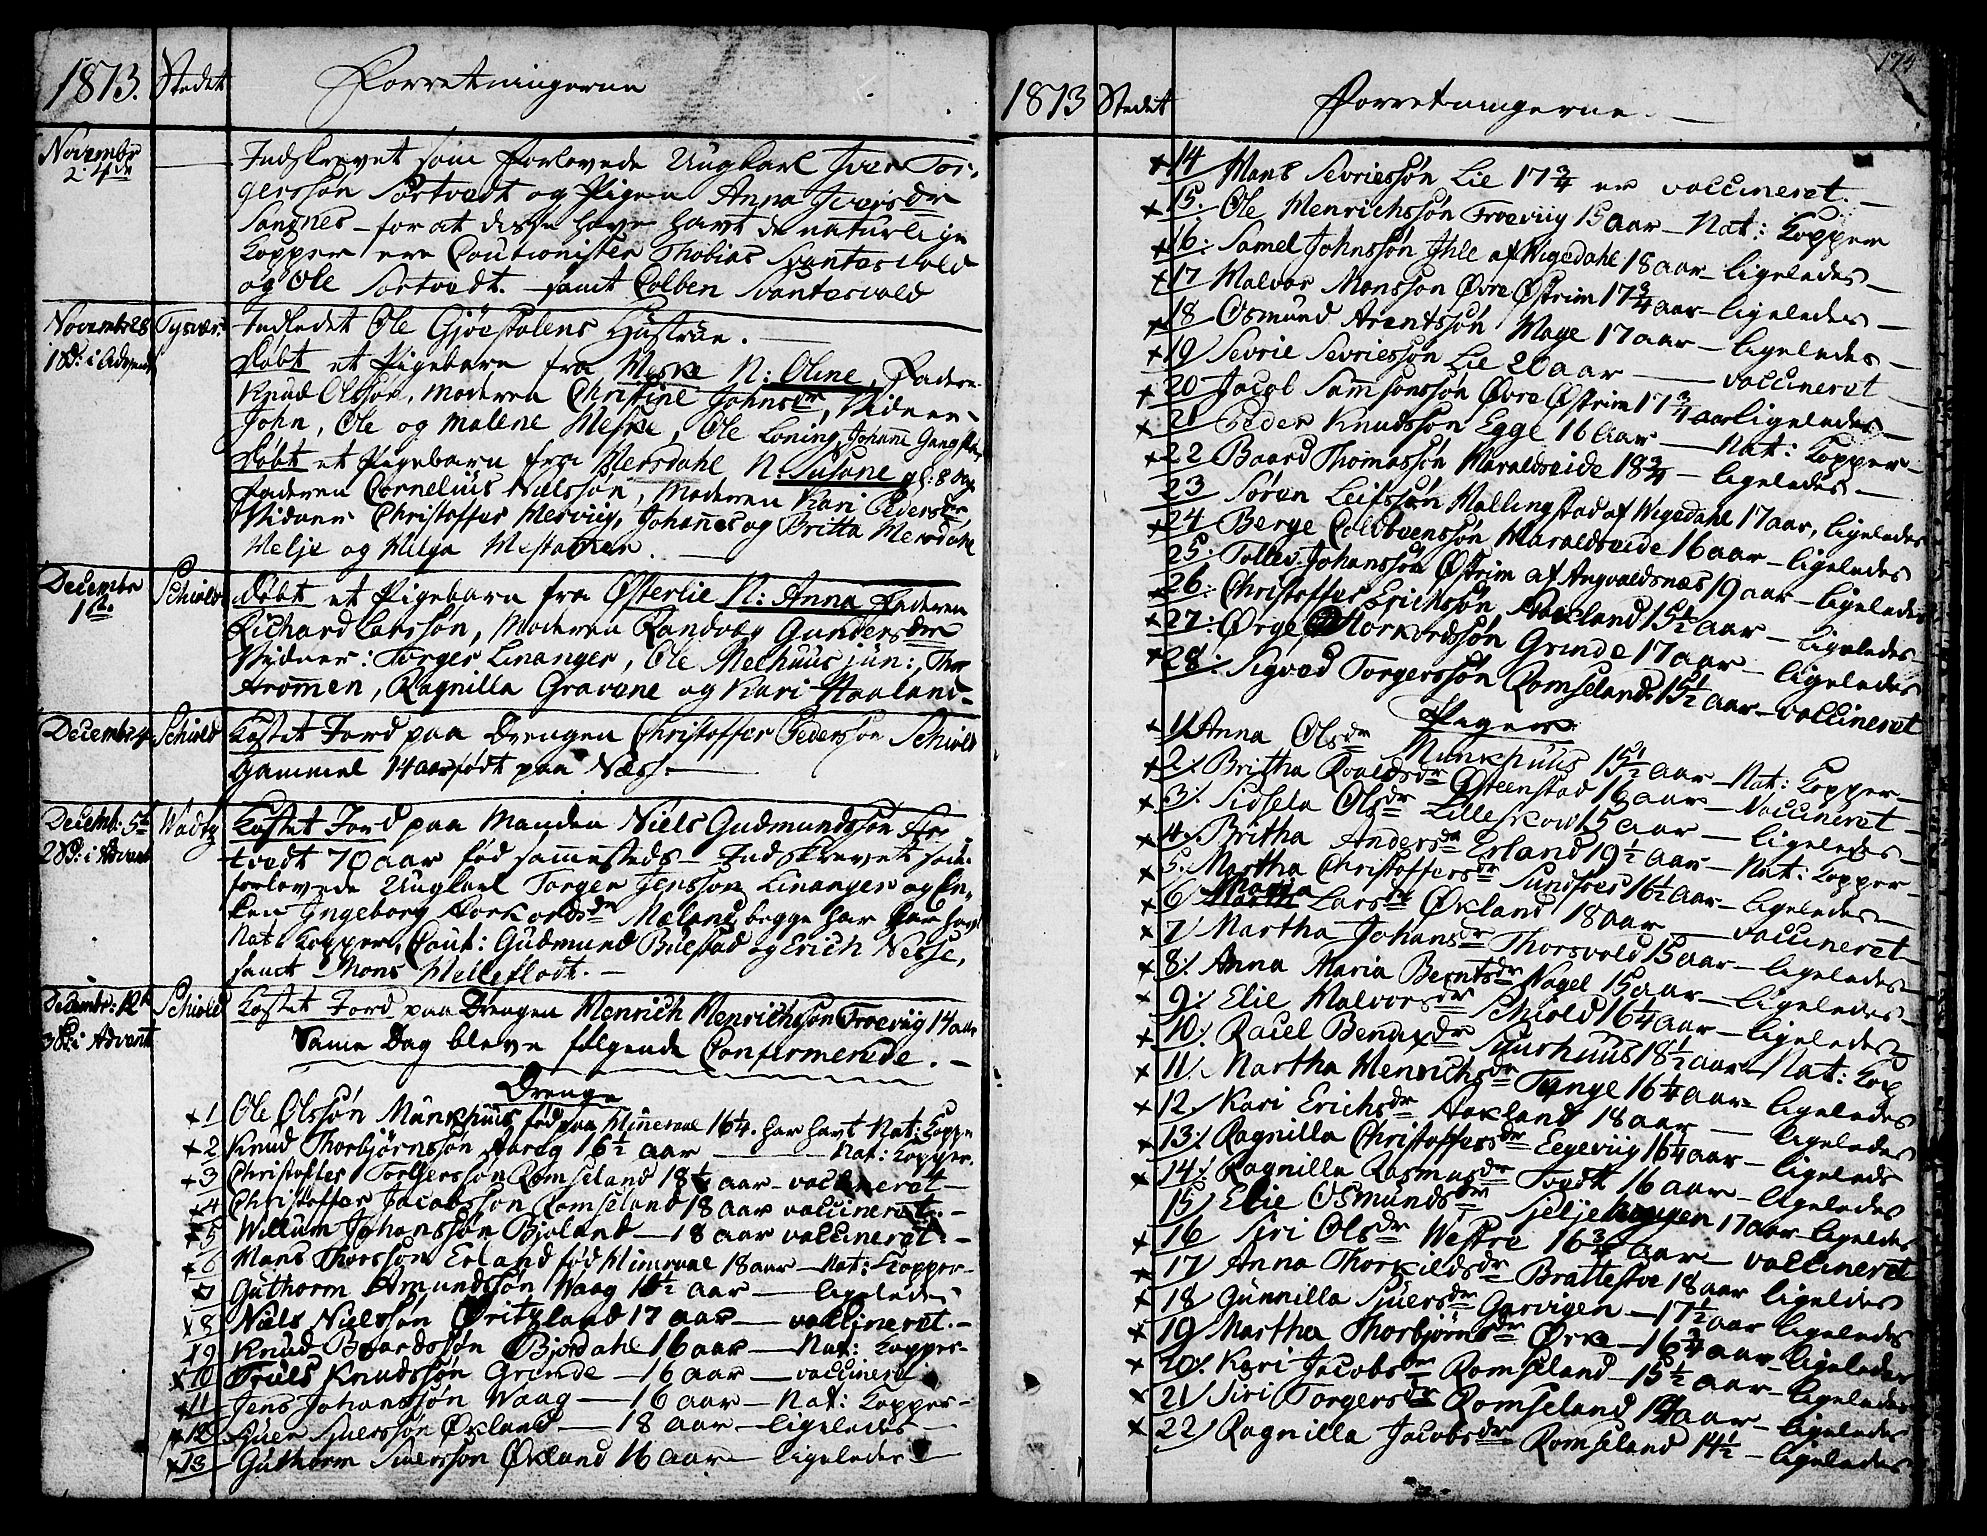 1813. Stedet Forretningerne
Novembr 2: 4de Indskrevet som forlovede Ungkarl Iver Tor-
gerssøn Sørtvedt og Pigen Anna Iversdr
Sangnes - for at disse have havt de naturlige
Kopper ere Cautionister Thobias Svantesvold
og Ole Sørtvedt. - samt Colben Svantesvold
Novembr 28 Tysvær: Indledet Ole Gjøestølens Hustrue.
1 Sd: i Advent Døbt et Pigebarn fra Meske N: Oline, Faderen
Knud Olssøn, Moderen Christine Johnsdr, Vidner
John, Ole og Malene Meske, Ole Loning, Johanne Gangstø
Døbt et Pigebarn fra Hersdahl N: Susane gl: 8 Dage
Faderen Cornelius Nielssøn, Moderen Kari Pedersdr,
Vidner Christoffer Herviig, Johannes og Britta Hersdahl
Helje og Helga
Decembr 1ste Schiold Døbt et Pigebarn fra Østerlie N: Anna Faderen
Richard Larssøn, Moderen Randveg Gundersdr
Vidner: Torger Linanger, Ole Melhuus jün:,
Arommen, Ragnilla Gravene og Kari Haaland -
Decembr 4 Schiold Kastet Jord paa Drengen Christoffer Pederssøn Schiold
Gammel 14 aar født paa Næss. -
Decemb: 5te Wadtz Kastet Jord paa Manden Niels Gudmundssøn
2 Sd: i Advent tvedt 70 aar fød sammesteds - Indskrevet som
forlovede Ungkarl Torger Jenssøn Linanger og En-
ken Ingeborg Torkordsdr Mæland, begge har
Nat: Kopper, Caut: Gudmund Buestad og Erich Nesse,
samt Mons Hetleflodt. -
Decembr: 12te Schiold Kastet Jord paa Drengen Henrich Henrichssøn Froeviig 14 aar
3 Sd: i Advent Same Dag bleve følgende Confirmerede. -
Drenge
1 Ole Olssøn Munkhuus fød paa Mineraal 16¼. har havt Nat: Koppe
2 Knud Thorbjørnssøn Aareg 16½ aar - Nat: Kopper.
3 Christoffer Torgerssøn Romseland 18¼ aar - vaccineret -
4 Christoffer Jacobssøn Romseland 18 aar vaccineret. -
5 Willum Johanssøn Bjoland - 18 aar vaccineret. -
6 Hans Thorssøn Erland fød Mineraal 18 aar - Nat: Kopper -
7 Guthorm Amundssøn Waag 16½ aar - ligeledes
8 Niels Nielssøn Øritzland 17 aar - vaccineret. -
9 Knud Baardssøn Bjordahl 16 aar - Nat: Kopper -
10 Truls Knudssøn Grinde - 16 aar - vaccineret
11 Jens Johanssøn Waag - 16 aar - Nat: Kopper -
12 Siuer Siuerssøn Øxland - 18 aar - ligeledes -
13 Guthorm Siuerssøn Øxland 16 aar - ligeledes -
174
1813 Stedet Forretningerne. -
14 Hans Sevriessøn Lie 17¾ er vaccineret. -
15. Ole Henrichssøn Froeviig 15 aar - Nat: Kopper
16: Samel Johnssøn Ihle af Wigedahl 18 aar - ligeledes -
17 Halvor Monssøn Øvre Østrim 17¾ aar - ligeledes -
18 Osmund Arentssøn Hage 17 aar - ligeledes -
19 Sevrie Sevriessøn Lie 20 aar - vaccineret
20 Jacob Samsonssøn Øvre Østrim 17¾ aar ligeledes -
21 Peder Knudssøn Egge 16 aar - Nat: Kopper -
22 Baard Thomassøn Haraldseide 18¾ - ligeledes -
23 Søren Leifssøn Hallingstad af Wigedahl 17 aar, ligeledes
24 Berge Coldbensøn Haraldseide 16 aar - ligeledes
25: Tollev Johanssøn Østrim af Augvaldsnæs 19 aar - ligeledes
26: Christoffer Erichssøn Aaxland 15½ aar - ligeledes
27: Ørge Torkordssøn Grinde 17 aar - ligeledes
28: Sigvad Torgerssøn Romseland 15½ aar - vaccineret
Piger
1. Anna Olsdr Munkhuus 15½ aar - Nat: Kopper -
2. Britha Roaldsdr Østeenstad 16 aar - Vaccineret -
3. Sidsela Olsdr Lilleskow 15 aar - ligeledes -
4. Britha Andersdr Erland 19½ aar - Nat: Kopper -
5. Martha Christoffersdr Sundfoer 16½ aar - ligeledes -
6 Maria Larsdr Øxland 18 aar - vaccineret -
7 Martha Johansdr Thorsvold 15 aar - ligeledes -
8. Anna Maria Berntsdr Nagel 15 aar - ligeledes -
9. Elie Halvorsdr Schiold 16¼ aar - ligeledes -
10. Rauel Bendixdr Suushuus 18½ aar - Nat: Kop
11. Martha Henrichsdr Tange 16¼ aar - ligeledes
12. Kari Erichsdr Aaxland 18 aar - ligeledes
13. Ragnilla Christoffersdr Eegeviig 16¼ aar - ligeledes
14. Ragnilla Rasmusdr Tvedt 16 aar - ligeledes
15 Elie Osmundsdr Sjeljehaugen 17 aar - ligeledes
16 Siri Olsdr Westre 16¾ aar - vaccineret
17 Anna Thorkildsdr Brattestøe 18 aar ligeledes
18 Gunnilla Sjuersdr Garvigen - 17½ aar ligeledes
19 Martha Thorbjørnsdr Ørke - 16¾ aar - ligeledes
20. Kari Jacobsdr Romseland - 15½ aar - ligeledes
21 Siri Torgersdr Romseland 14 aar - ligeledes
22 Ragnilla Jacobsdr Romseland 14½ - ligeledes